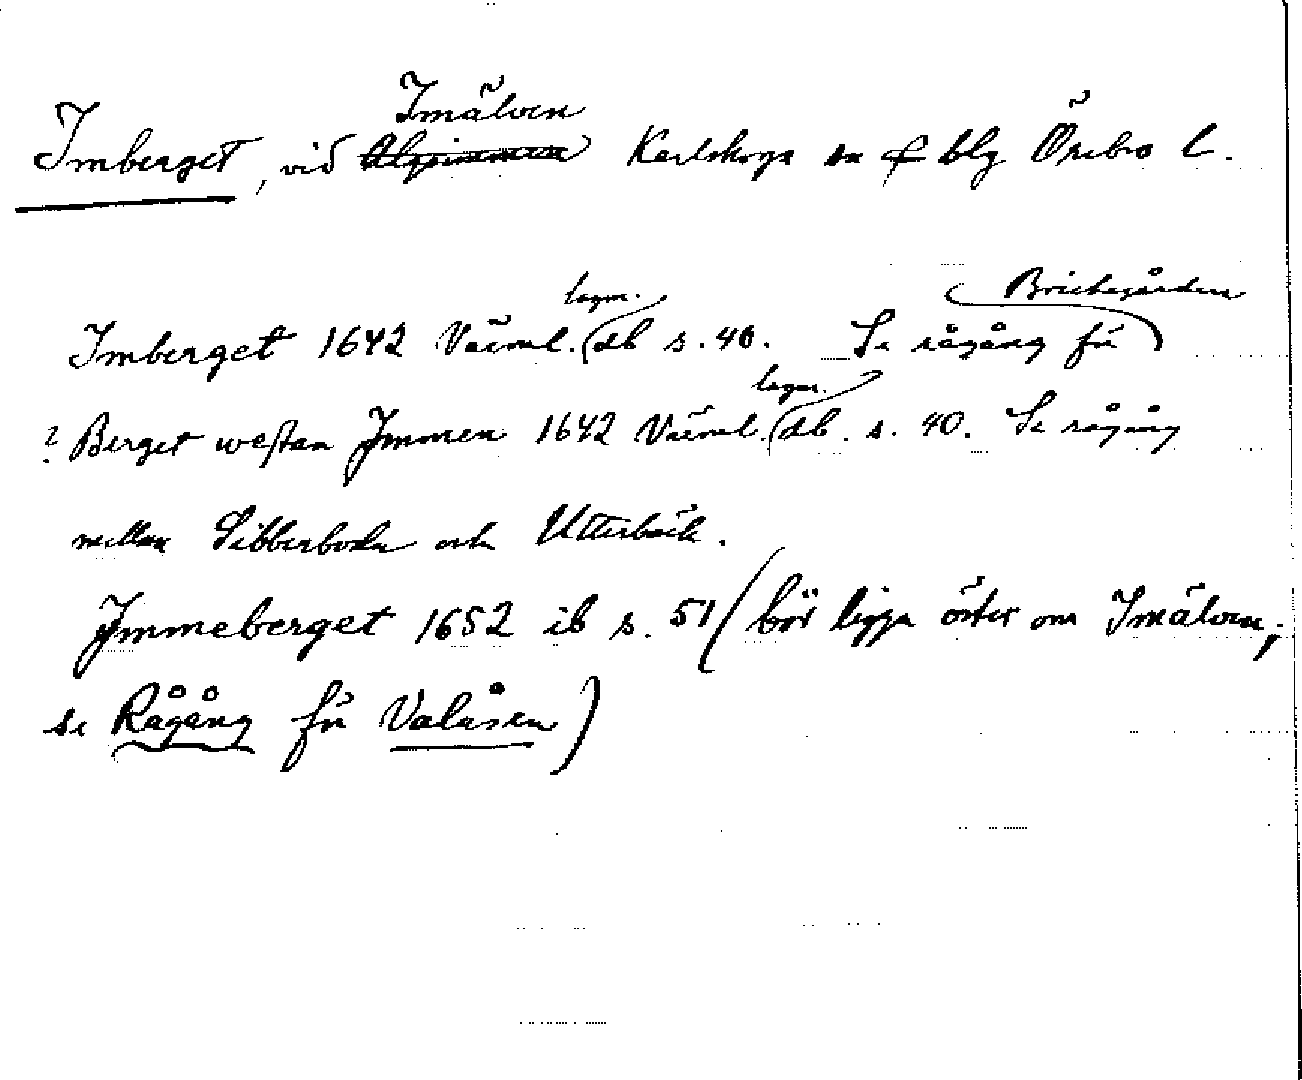 Imälven
Imberget, vid Alpimmen Karlskoga sn o blg Örebro l.
lagm. Brickegården
Imberget 1642 Värml. db s. 40. Se rågång fr
lagm.
? Berget westan Jmmen 1642 Värml. db. s. 40. Se rågång
mellan Sibberboda och Utterbäck.
Jmmeberget 1652 ib s. 51 (bör ligga öster om Imälven;
se Rågång fr Valåsen)